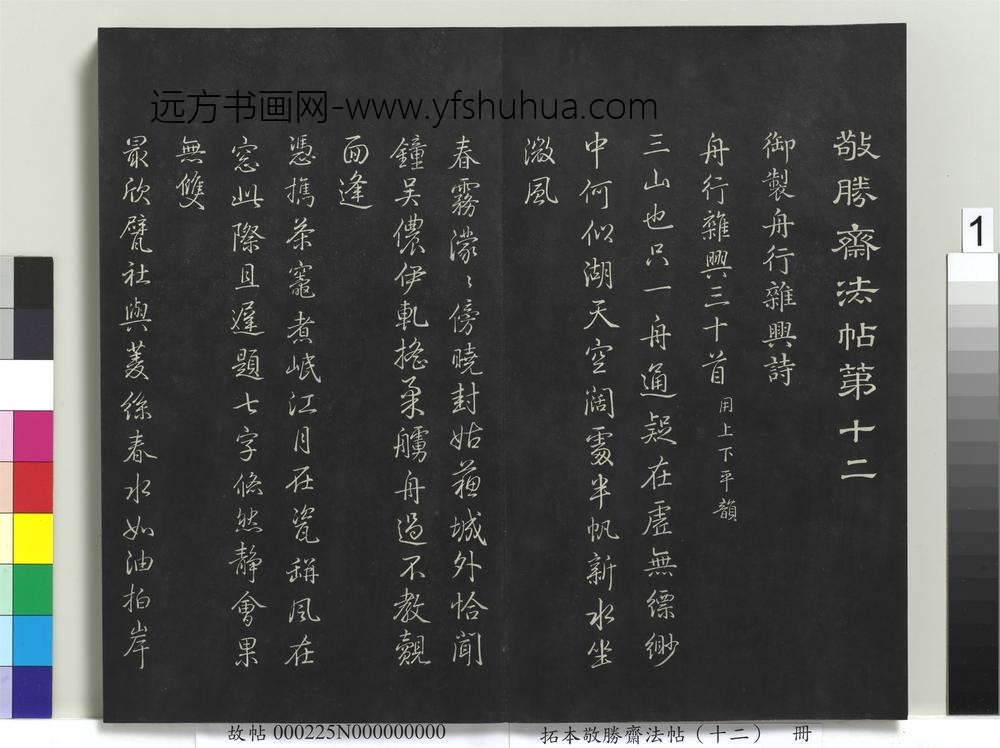 远方书画网-www.yfshuhua.com
敬勝齋法帖第十二
御製舟行雜興詩
舟行雜興三十首 用上下平韻
三山也只一舟通疑在虛無縹緲
中何似湖天空闊處半帆新水坐
微風
春霧濛〻傍曉封姑蘇城外恰聞
鐘吳儂伊軋搖柔艣舟過不教覿
面逢
憑攜茶竈煮岷江月在瓷稱風在
窓此際且遲題七字翛然靜會果
無雙
最欣甓社與菱絲春水如油拍岸
1
故帖 000225N000000000
拓本敬勝齋法帖（十二） 冊